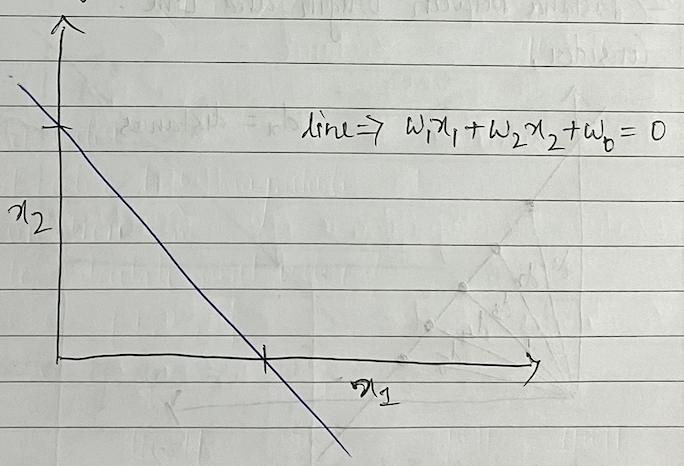 line ⇒ w₁x₁ + w₂x₂ + w₀ = 0
x₂
x₁